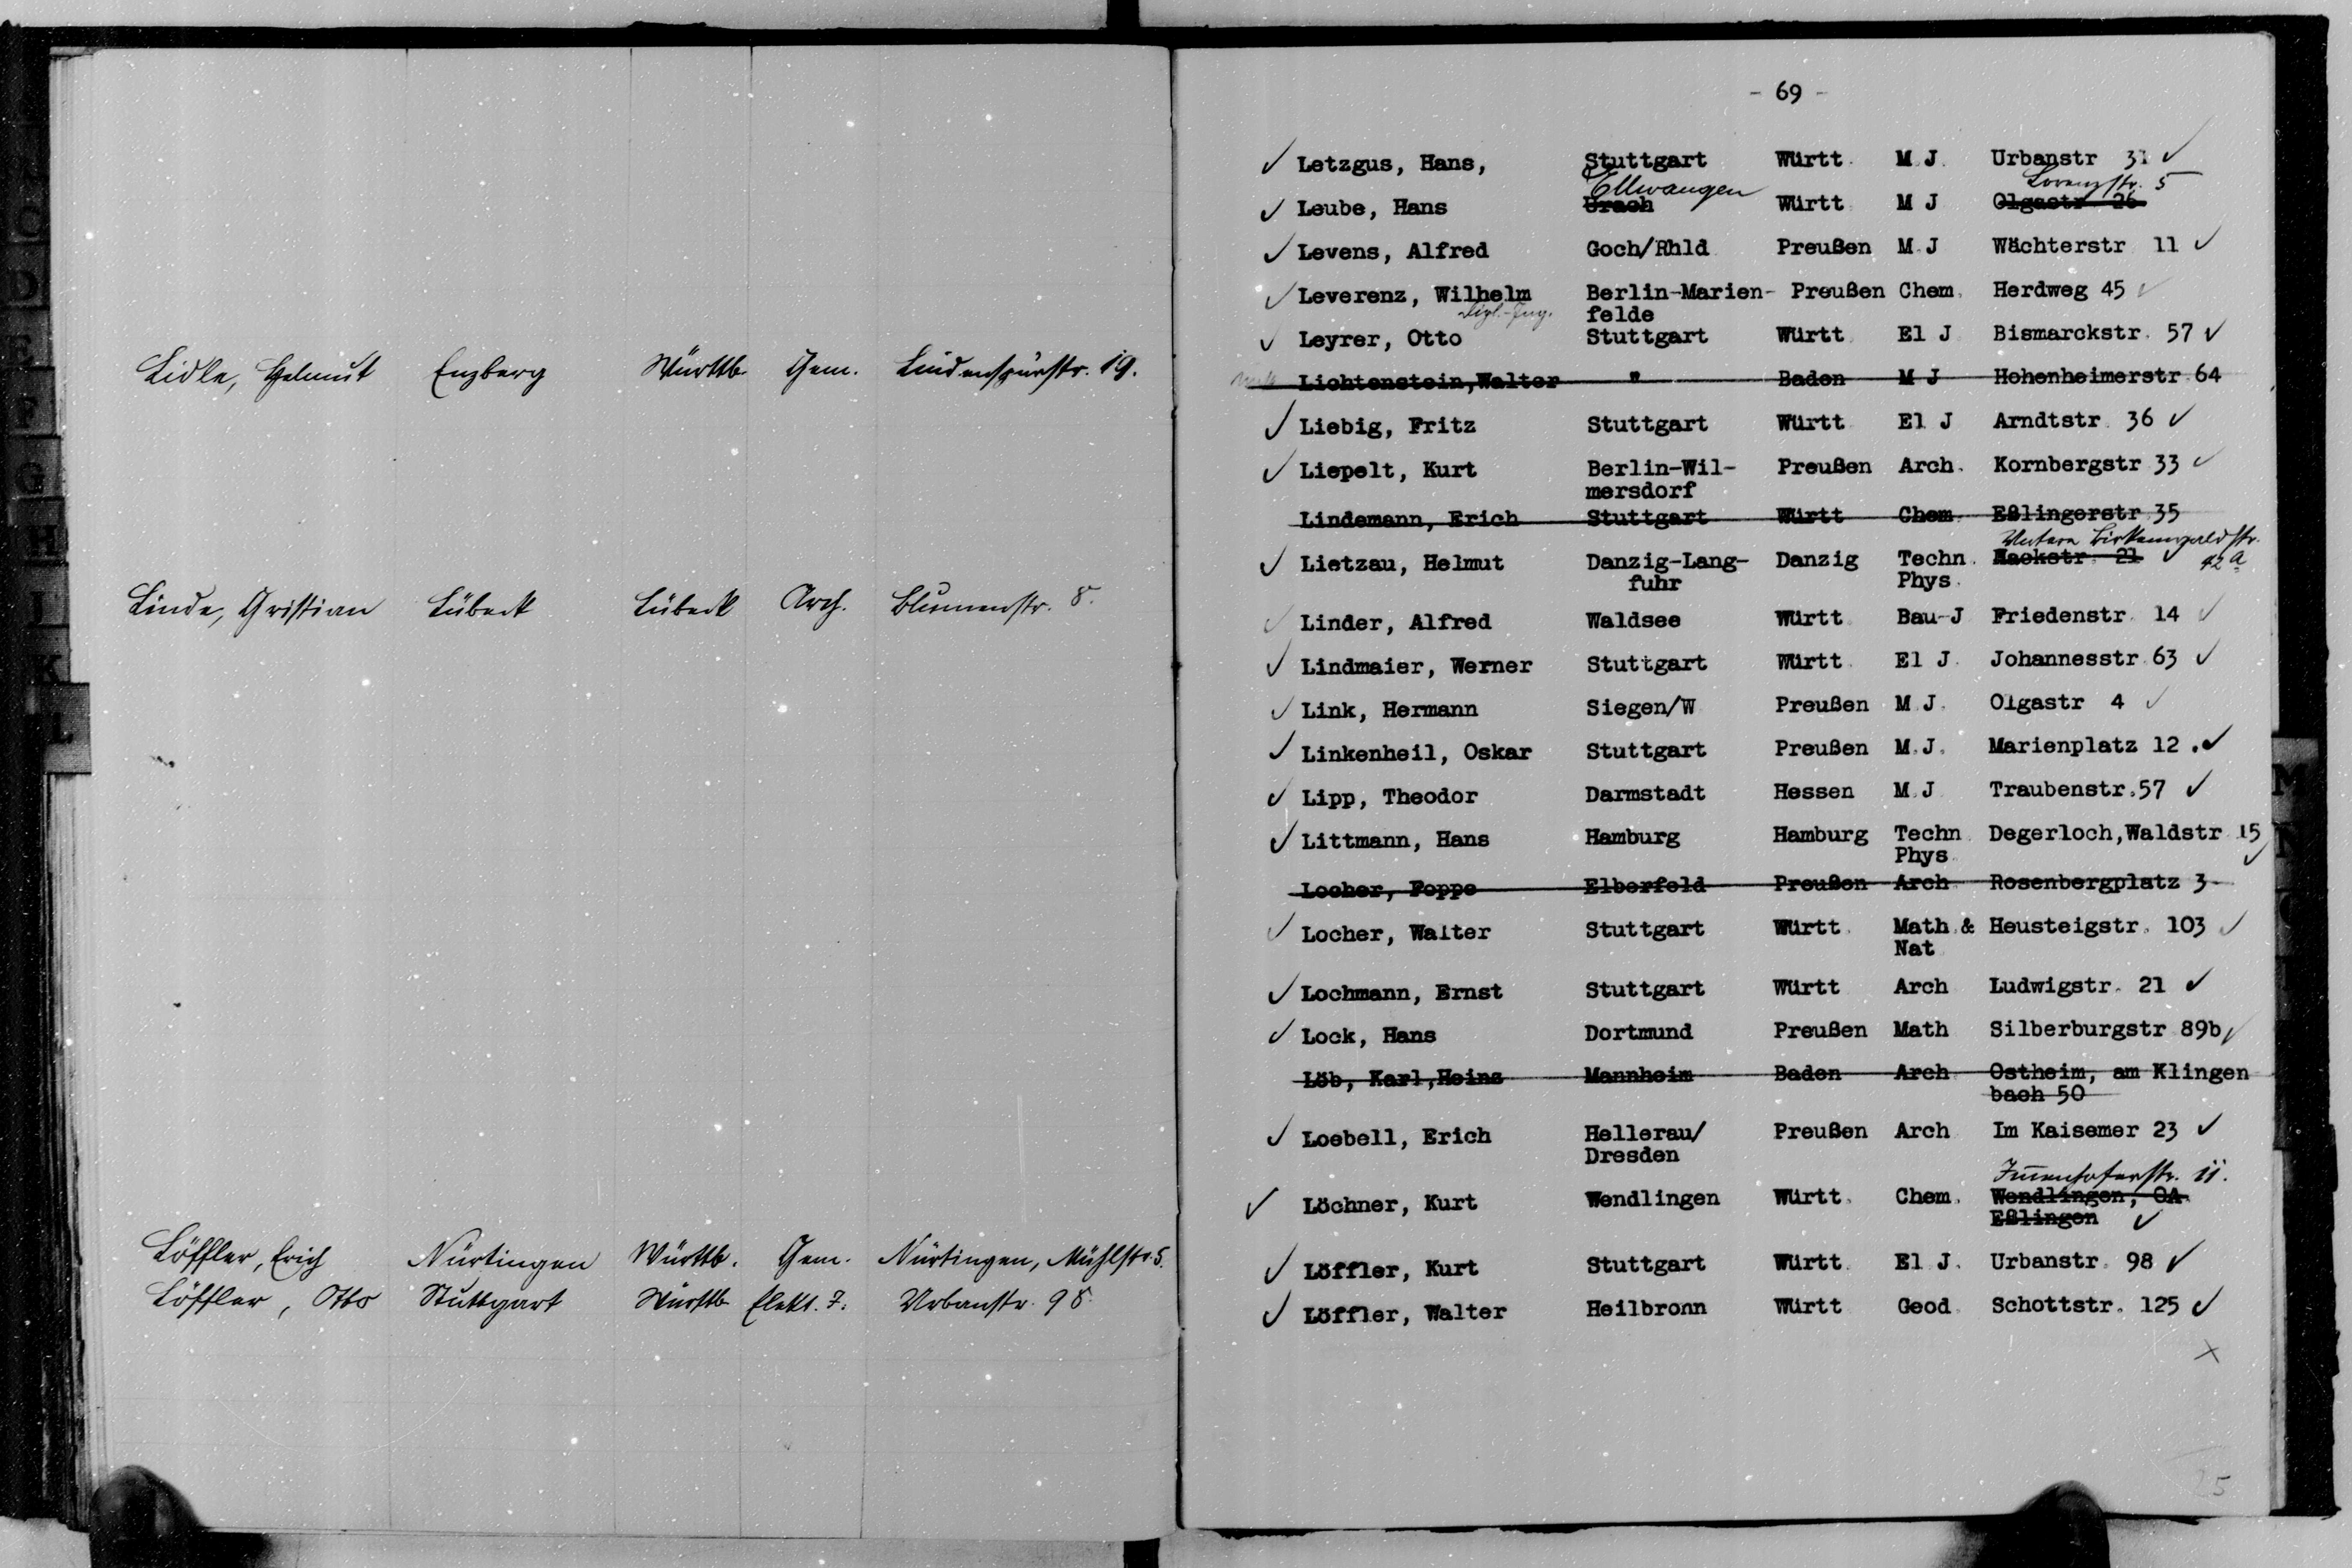 Lidle, Helmut Enzberg Württb. Chem. Lindenspürstr. 19.
Linde, Christian Lübeck Lübeck Arch. Blumenstr. 8.
Löffler, Erich Nürtingen Württb. Chem. Nürtingen, Mühlstr. 5.
Löffler, Otto Stuttgart Württb. Elekt. J. Urbanstr. 98
- 69 -
Letzgus, Hans, Stuttgart Württ. M.J. Urbanstr 31
Ellwangen Lorenzstr. 5
Leube, Hans Urach Württ M J Olgastr 26
Levens, Alfred Goch/Rhld. Preußen M.J Wächterstr 11
Leverenz, Wilhelm Berlin-Marien- Preußen Chem. Herdweg 45
Dipl.-Ing. felde
Leyrer, Otto Stuttgart Württ El J Bismarckstr. 57
Lichtenstein,Walter " Baden M J Hohenheimerstr 64
Liebig, Fritz Stuttgart Württ El J Arndtstr. 36
Liepelt, Kurt Berlin-Wil- Preußen Arch. Kornbergstr 33
mersdorf
Lindemann, Erich Stuttgart Württ Chem. Eßlingerstr 35
Untere Birkenwaldstr.
Lietzau, Helmut Danzig-Lang- Danzig Techn. Hackstr. 21 42 a
fuhr Phys.
Linder, Alfred Waldsee Württ Bau-J Friedenstr. 14
Lindmaier, Werner Stuttgart Württ. El J. Johannesstr. 63
Link, Hermann Siegen/W Preußen M J. Olgastr 4
Linkenheil, Oskar Stuttgart Preußen M.J. Marienplatz 12.
Lipp, Theodor Darmstadt Hessen M.J Traubenstr.57
Littmann, Hans Hamburg Hamburg Techn. Degerloch,Waldstr 15
Phys.
Locher, Poppe Elberfeld Preußen Arch Rosenbergplatz 3
Locher, Walter Stuttgart Württ. Math.& Heusteigstr. 103
Nat
Lochmann, Ernst Stuttgart Württ Arch Ludwigstr. 21
Lock, Hans Dortmund Preußen Math Silberburgstr 89b
Löb, Karl,Heinz Mannheim Baden Arch Ostheim, am Klingen
bach 50
Loebell, Erich Hellerau/ Preußen Arch Im Kaisemer 23
Dresden
Immenhoferstr. 11.
Löchner, Kurt Wendlingen Württ. Chem. Wendlingen, OA.
Eßlingen
Löffler, Kurt Stuttgart Württ. El J. Urbanstr. 98
Löffler, Walter Heilbronn Württ Geod. Schottstr. 125
25
C
D
E
F
G
H
I
K
L
M
N